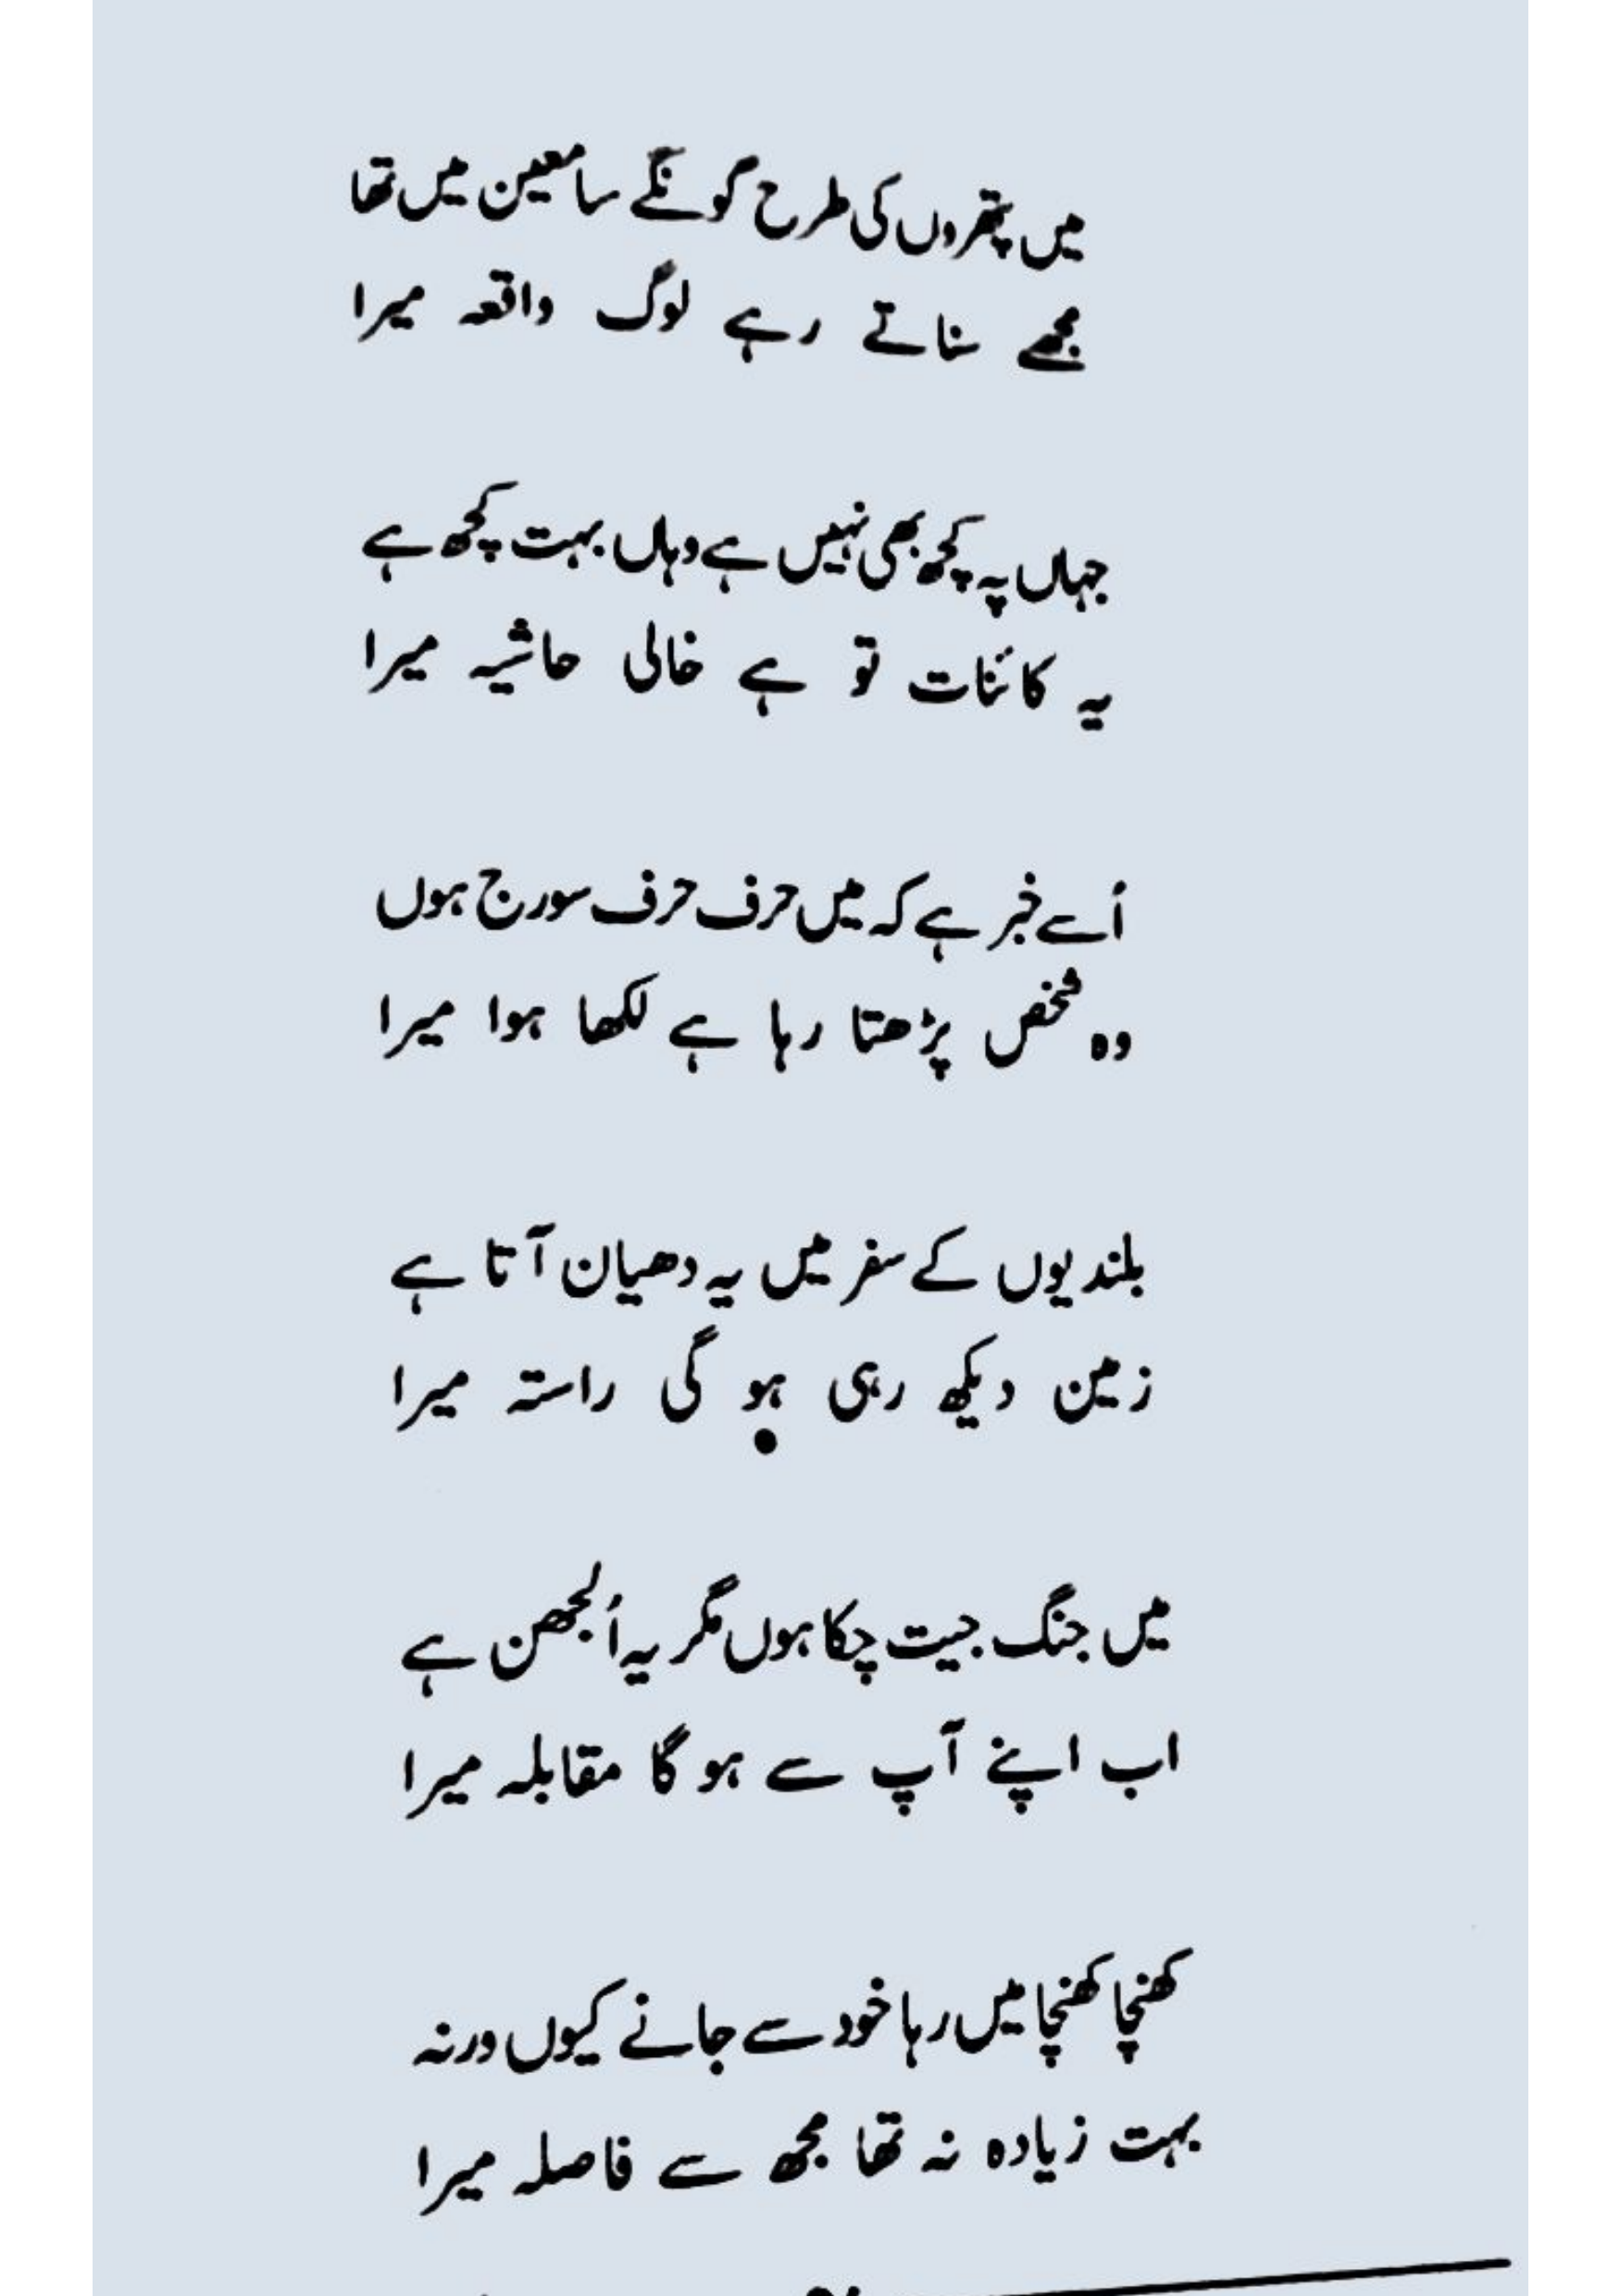 میں پتھروں کی طرح گونگے سامعین میں تھا
مجھے سناتے رہے لوگ واقعہ میرا
جہاں پہ کچھ بھی نہیں ہے وہاں بہت کچھ ہے
یہ کائنات تو ہے خالی حاشیہ میرا
اُسے خبر ہے کہ میں حرف حرف سورج ہوں
وہ شخص پڑھتا رہا ہے لکھا ہوا میرا
بلندیوں کے سفر میں یہ دھیان آتا ہے
زمین دیکھ رہی ہو گی راستہ میرا
میں جنگ جیت چکا ہوں مگر یہ اُلجھن ہے
اب اپنے آپ سے ہو گا مقابلہ میرا
کھنچا کھنچا میں رہا خود سے جانے کیوں ورنہ
بہت زیادہ نہ تھا مجھ سے فاصلہ میرا